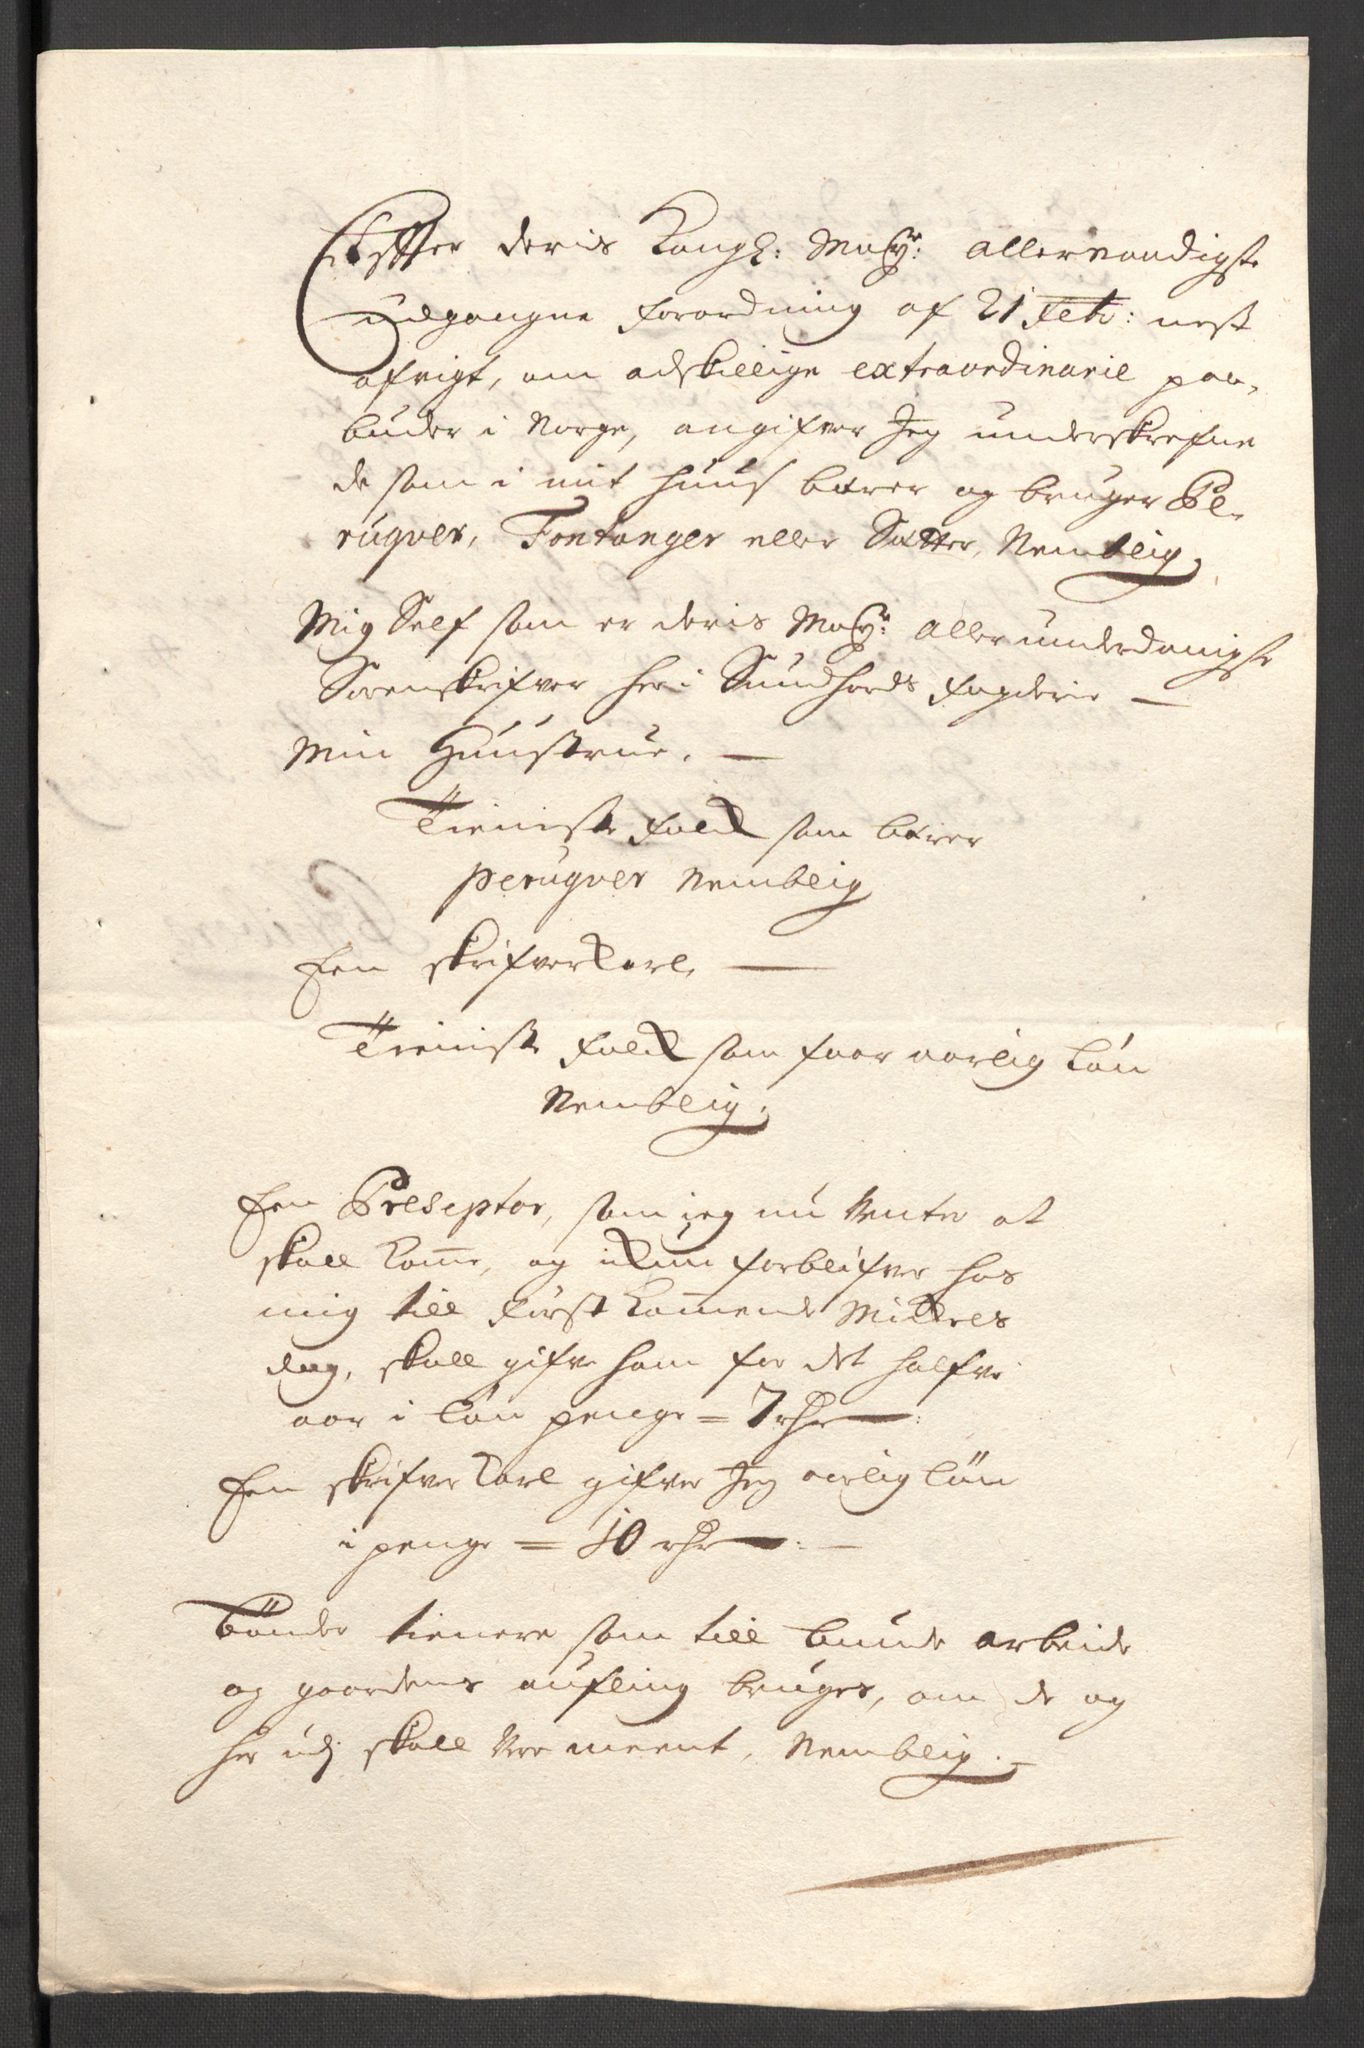 Effter deris Kongl: Maÿt: allernaadigste
udgangne forordning af 21 Febr: nest
afvigt, om adskillige extraordinarie paa-
buder i Norge, angifver Jeg underskrefne
de som i mit Huus bærer og bruger Pe-
ruqver, Fontanger eller Sætter, Nemblig,
Mig Self som er deris Maÿts: allerunderdanigste
Sorenskrifver her i Sundhords fogderie —
Min Hùùstrue. —
Tieniste folck som bærer
peruqver Nemblig
Een skrifverkarl, —
Tieniste folck som faar aarlig løn
Nemblig.
Een Preseptor, som jeg nu Vænter at
skall komme, og ickun forblifver hos
mig till først kommende Mickels
dag, skall gifve ham for det halfve
aar i løn penge = 7 rdr —:
Een skrifver karl gifver Jeg aarlig løn
i penge = 10 rdr —:—
Bønder tienere som till bunde arbeide
og gaardens aufling bruges, om de og
her udj skall være meent, Nemblig. —